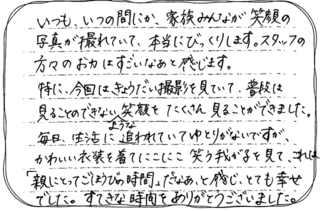 いつも、いつの間にか、家族みんなが笑顔の
写真が撮れていて、本当にびっくりします。スタッフの
方々のお力はすごいなぁと感じます。
特に、今回はきょうだい撮影を見ていて、普段は
見ることのできないような笑顔をたくさん見ることができました。
毎日、生活に追われていてゆとりがないですが、
かわいい衣装を着てにこにこ笑う我が子を見て、これは
「親にとってごほうびの時間」だなぁ、と感じ、とても幸せ
でした。すてきな時間をありがとうございました。